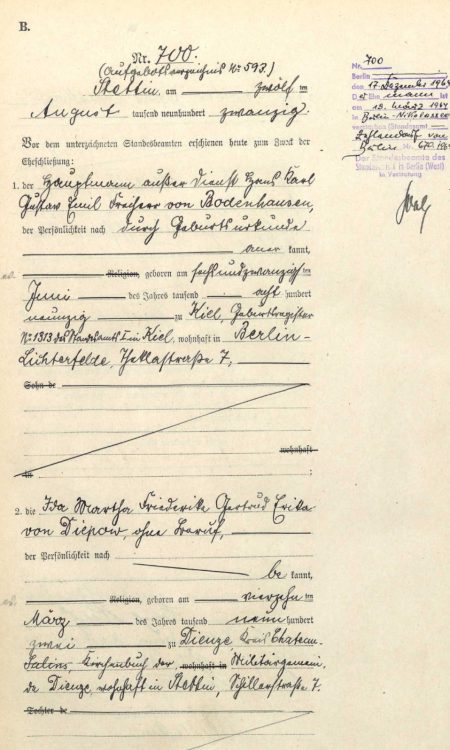 B.
Nr. 700.
(Aufgebotsverzeichnis No 593.)
Stettin, am zwölften
August tausend neunhundert zwanzig.
Vor dem unterzeichneten Standesbeamten erschienen heute zum Zweck der
Eheschließung:
1. der Hauptmann außer Dienst Hans Karl
Gustav Emil Freiherr von Bodenhausen,
der Persönlichkeit nach durch Geburtsurkunde
aner kannt,
Religion, geboren am sechsundzwanzigsten
Juni des Jahres tausend acht hundert
neunzig zu Kiel, Geburtsregister
No 1313 des Standesamts I in Kiel, wohnhaft in Berlin-
Lichterfelde, Theklastraße 7,
Sohn de
wohnhaft
in
2. die Ida Martha Friederike Gertrud Erika
von Diepow, ohne Beruf,
der Persönlichkeit nach
be kannt,
Religion, geboren am vierzehnten
März des Jahres tausend neun hundert
zwei zu Dieuze Kreis Chateau-
Salins Kirchenbuch der wohnhaft in Militärgemein-
de Dieuze, wohnhaft in Stettin, Schillerstraße 7.
Tochter de
Nr. 700
Berlin
den 17. Dezember 1964
D mann ist
am 19. März 1964
in Berlin-Nikolassee
verstorben (Standesamt
Zehlendorf von
Berlin Nr. 670
Der Standesbeamte des
Standesamts I in Berlin (West)
In Vertretung